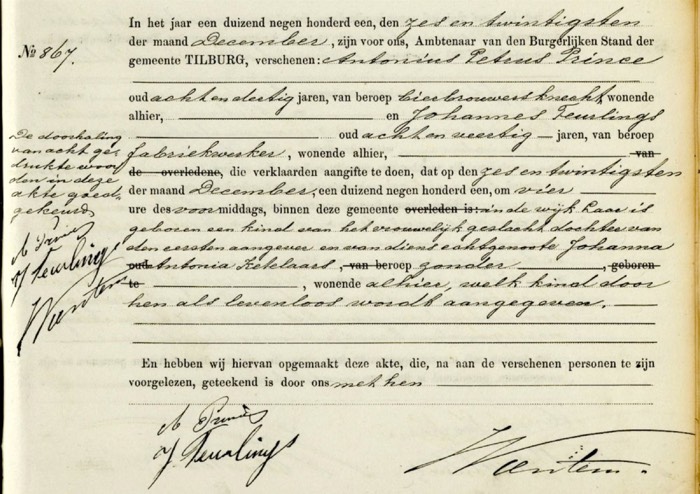 No 867.
In het jaar een duizend negen honderd een, den zes en twintigsten
der maand December, zijn voor ons, Ambtenaar van den Burgerlijken Stand der
gemeente TILBURG, verschenen: Antonius Petrus Prince
oud acht en dertig jaren, van beroep bierbrouwersknecht, wonende
alhier, en Johannes Feurlings
oud acht en veertig jaren, van beroep
fabriekwerker, wonende alhier, van
de overledene, die verklaarden aangifte te doen, dat op den zes en twintigsten
der maand December, een duizend negen honderd een, om vier
ure des voormiddags, binnen deze gemeente overleden is: in de wijk Laar is
geboren een kind van het vrouwelijk geslacht dochter van
den eersten aangever en van diens echtgenoote Johanna
oud Antonia Ketelaars, van beroep zonder, geboren
te, wonende alhier, welk kind door
hen als levenloos wordt aangegeven.
De doorhaling
van acht ge-
drukte woor-
den in deze
akte goed-
gekeurd
A Prince
J Feurlings
En hebben wij hiervan opgemaakt deze akte, die, na aan de verschenen personen te zijn
voorgelezen, geteekend is door ons met hen
A Prince
J. Feurlings